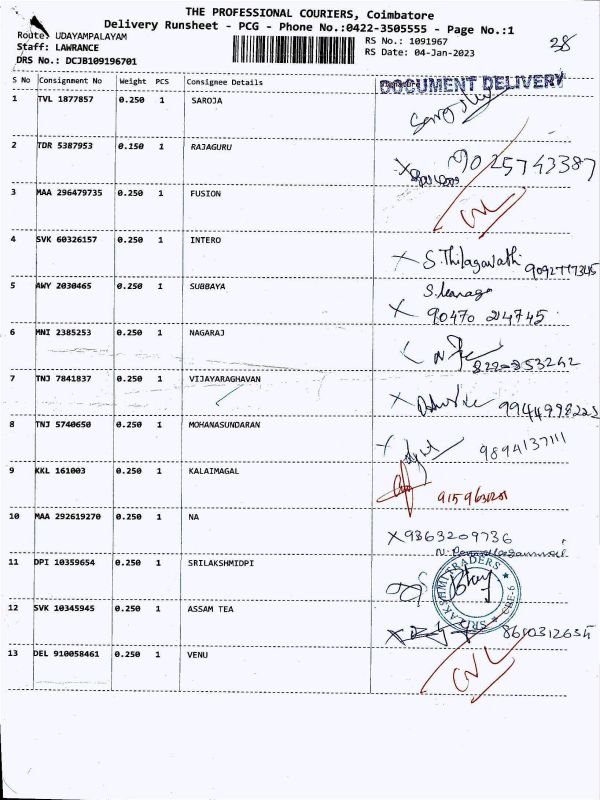 THE PROFESSIONAL COURIERS, Coimbatore
Delivery Runsheet - PCG - Phone No.:0422-3505555 - Page No.:1
Route: UDAYAMPALAYAM
Staff: LAWRANCE
DRS No.: DCJB109196701
RS No.: 1091967
RS Date: 04-Jan-2023
38
S No Consignment No Weight PCS Consignee Details
DOCUMENT DELIVERY
1 TVL 1877857 0.250 1 SAROJA
2 TDR 5387953 0.150 1 RAJAGURU
9025743387
3 MAA 296479735 0.250 1 FUSION
CNL
4 SVK 60326157 0.250 1 INTERO
X S.Thilagavathi 9092777345
5 AWY 2030465 0.250 1 SUBBAYA
X 90470 24745
6 MNI 2385253 0.250 1 NAGARAJ
7 TNJ 7841837 0.250 1 VIJAYARAGHAVAN
X 9944998223
8 TNJ 5740650 0.250 1 MOHANASUNDARAN
X 9894137111
9 KKL 161003 0.250 1 KALAIMAGAL
9159631201
10 MAA 292619270 0.250 1 NA
X 9363209736
11 DPI 10359654 0.250 1 SRILAKSHMIDPI
SRI LAKSHMI TRADERS
CBE-6
12 SVK 10345945 0.250 1 ASSAM TEA
8610312634
13 DEL 910058461 0.250 1 VENU
CNL